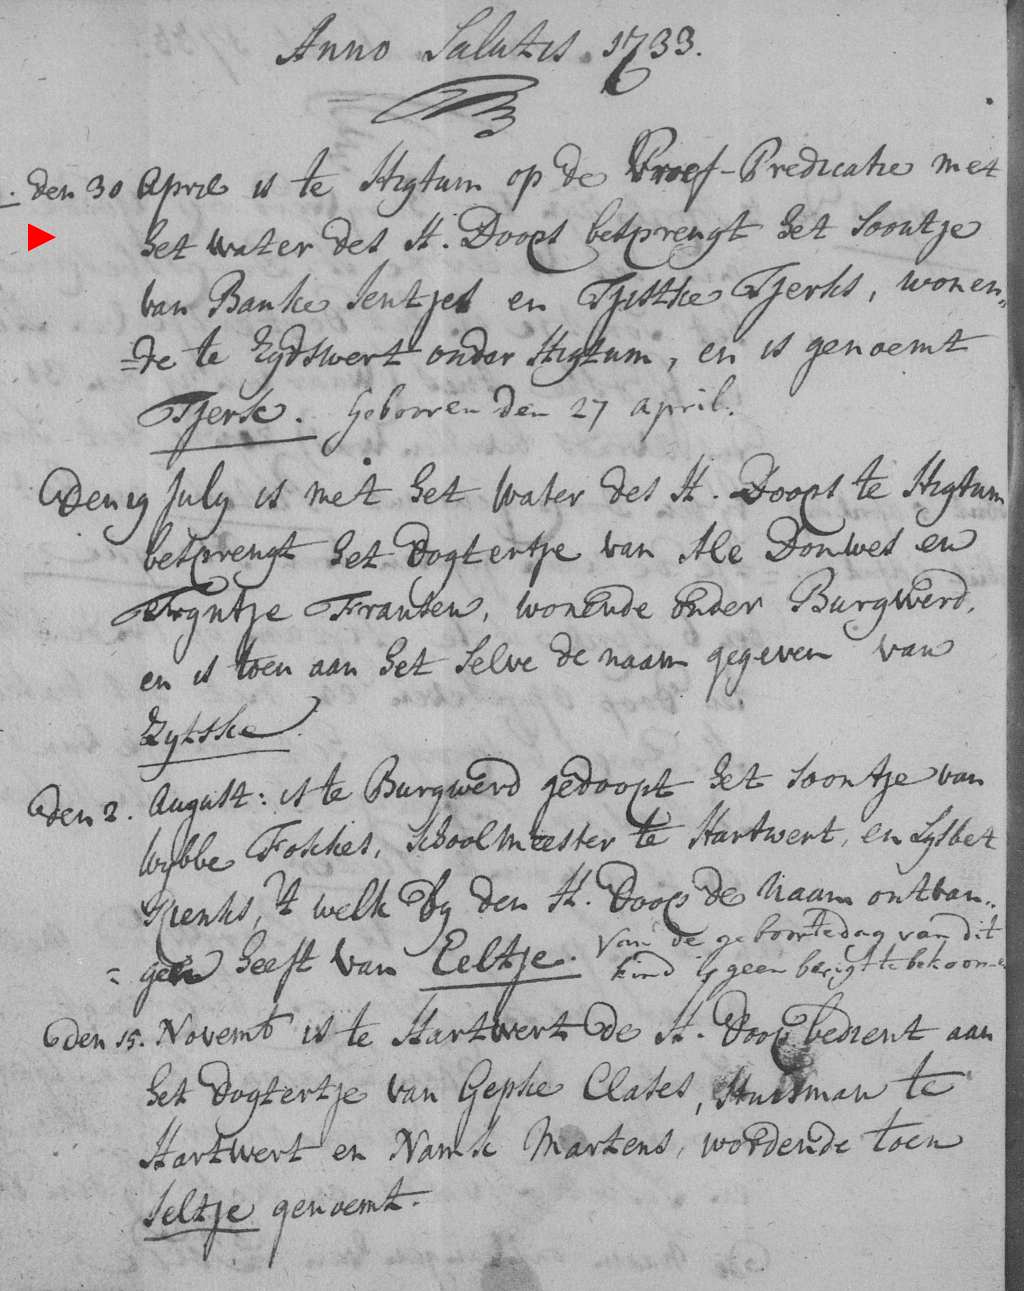 Anno Salutis. 1733.
den 30 April is te Higtum op de Proef-Predicatie met
het water des H. Doops besprengt het Soontje
van Banke Sentjes en Tjitske Tjerks, wonen„
=de te Eydswert onder Higtum, en is genoemt
Tjerk. Geborren den 27 april.
Den 19 July is met het water des H. Doops te Higtum
besprengt het dogtertje van Ale Douwes en
Tryntje Fransen, wonende onder Burgwerd,
en is toen aan het selve de naam gegeven van
Eytske.
den 2. August: is te Burgwerd gedoopt het soontje van
Wybbe Fokkes, Schoolmeester te Hartwert, en Lysbet
Rienks, 't welk by den H. Doop de Naam ontvan„
=gen heeft van Eeltje. Van de geboortedag van dit
kind is geen berigt te bekoomen
den 15. Novemb is te Hartwert de H. Doop bedient aan
het dogtertje van Gepke Clases, Huisman te
Hartwert en Namk Martens, wordende toen
Seltje genoemt.